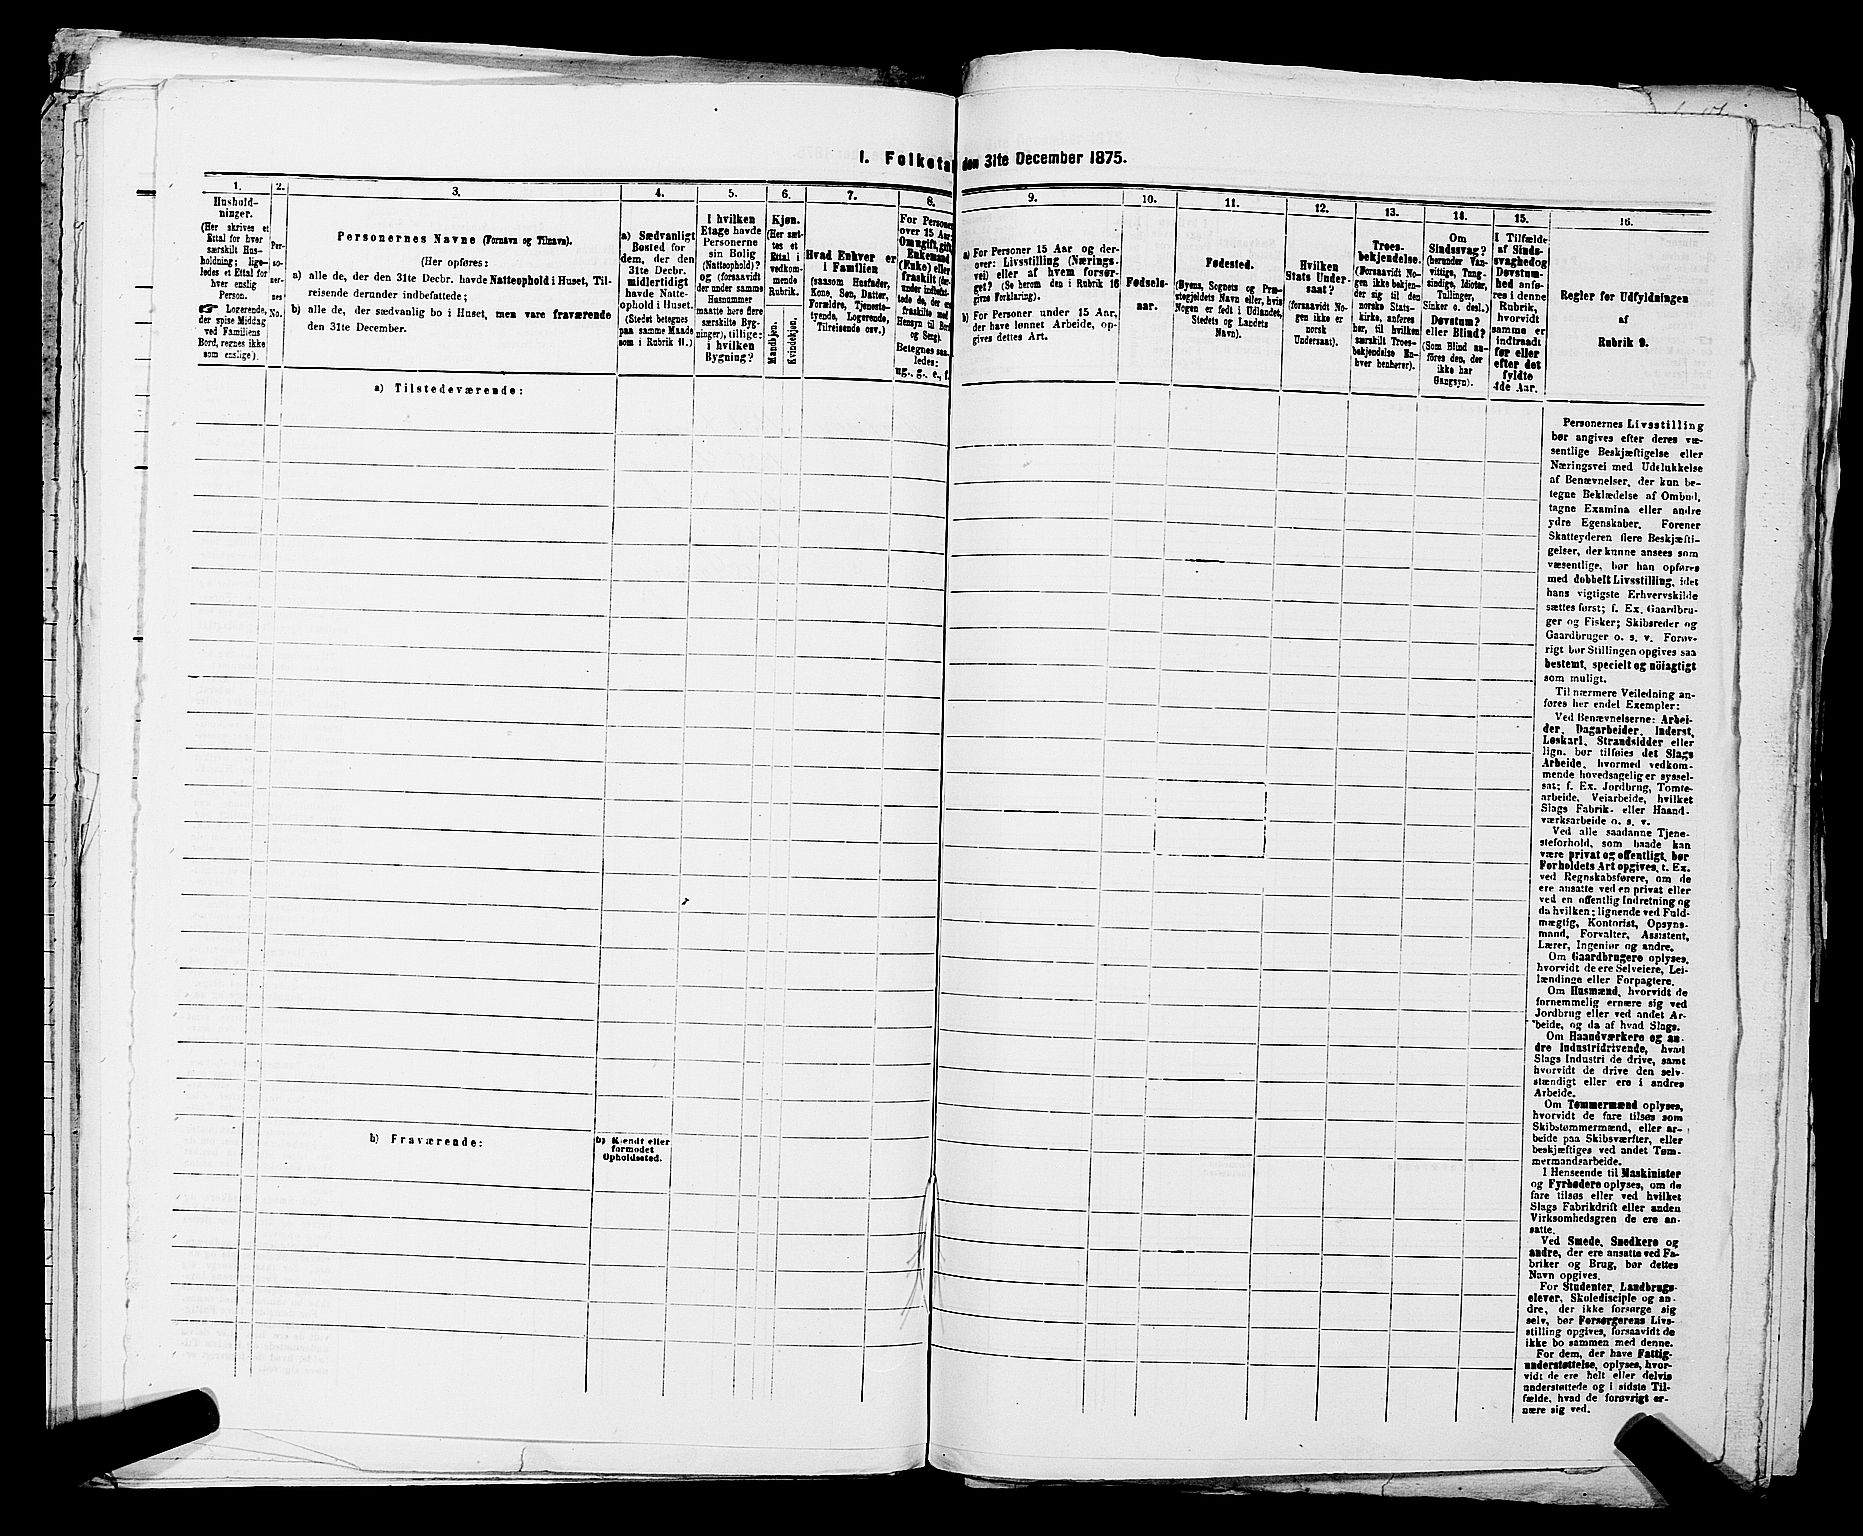 I. Folketæ den 31te December 1875.
1.
Hushold-
ninger.
(Her skrives et
Ettal for hver
særskilt Hus-
holdning; lige-
ledes et Ettal for
hver enslig
Person.
☞ Logerende,
der spise Middag
ved Familiens
Bord, regnes ikke
som enslige).
2.
Per-
so-
ner-
nes
No.
3.
Personernes Navne (Fornavn og Tilnavn).
(Her opføres:
a) alle de, der den 31te Decbr. havde Natteophold i Huset, Til-
reisende derunder indbefattede;
b) alle de, der sædvanlig bo i Huset, men vare fraværende
den 31te December.
4.
a) Sædvanligt
Bosted for
dem, der den
31te Decbr.
midlertidigt
havde Natte-
ophold i Huset.
(Stedet betegnes
paa samme Maade
som i Rubrik 11.)
5.
I hvilken
Etage havde
Personerne
sin Bolig
(Natteophold)?
og (forsaavidt
der under samme
Husnummer
maatte høre flere
særskilte Byg-
ninger), tillige:
i hvilken
Bygning?
6.
Kjøn.
(Her sæt-
tes et
Ettal i
vedkom-
mende
Rubrik.
Mandkjøn.
Kvindekjøn.
7.
Hvad Enhver er
i Familien
(saasom Husfader,
Kone, Søn, Datter,
Forældre, Tjeneste-
tyende, Logerende,
Tilreisende osv.)
8.
For Personer
over 15 Aar:
Om ugift, gift,
Enkemand
(Enke) eller
fraskilt (der-
under indbefat-
tede de, der ere
fraskilte med
Hensyn til Bord
og Seng).
Betegnes saa-
ledes:
ug., g., e., f.
9.
a) For Personer 15 Aar og der-
over: Livsstilling (Nærings-
vei) eller af hvem forsør-
get? (Se herom den i Rubrik 16
givne Forklaring).
b) For Personer under 15 Aar,
der have lønnet Arbeide, op-
gives dettes Art.
10.
Fødsels-
aar.
11.
Fødested.
(Byens, Sognets og Præ-
stegjeldets Navn eller, hvis
Nogen er født i Udlandet,
Stedets og Landets
Navn).
12.
Hvilken
Stats Under-
saat?
(forsaavidt No-
gen ikke er
norsk
Undersaat).
13.
Troes-
bekjendelse.
(Forsaavidt No-
gen ikke bekjen-
der sig til den
norske Stats-
kirke, anføres
her, til hvilken
særskilt Troes-
bekjendelse En-
hver henhører).
14.
Om
Sindssvag?
(herunder Van-
vittige, Tung-
sindige, Idioter,
Tullinger,
Sinker o. desl.)
Døvstum?
eller Blind?
(Som Blind an-
føres den, der
ikke har
Gangsyn).
15.
I Tilfælde
af Sinds-
svaghed og
Døvstum-
hed anfø-
res i denne
Rubrik,
hvorvidt
samme er
indtraadt
før eller
efter det
fyldte
4de Aar.
16.
Regler for Udfyldningen
af
Rubrik 9.
a) Tilstedeværende:
b) Fraværende:
b) Kjendt eller
formodet
Opholdssted.
Personernes Livsstilling
bør angives efter deres væ-
sentlige Beskjæftigelse eller
Næringsvei med Udelukkelse
af Benævnelser, der kun be-
tegne Beklædelse af Ombud,
tagne Examina eller andre
ydre Egenskaber. Forener
Skatteyderen flere Beskjæfti-
gelser, der kunne ansees som
væsentlige, bør han opføres
med dobbelt Livsstilling, idet
hans vigtigste Erhvervskilde
sættes først; f. Ex. Gaardbru-
ger og Fisker; Skibsreder og
Gaardbruger o. s. v. Forøv-
rigt bør Stillingen opgives saa
bestemt, specielt og nöiagtigt
som muligt.
Til nærmere Veiledning an-
føres her endel Exempler:
Ved Benævnelserne: Arbei-
der, Dagarbeider, Inderst,
Løskarl, Strandsidder eller
lign. bør tilføies det Slags
Arbeide, hvormed vedkom-
mende hovedsagelig er syssel-
sat; f. Ex. Jordbrug, Tomte-
arbeide, Veiarbeide, hvilket
Slags Fabrik- eller Haand-
værksarbeide o. s. v.
Ved alle saadanne Tjene-
steforhold, som baade kan
være privat og offentligt, bør
Forholdets Art opgives, t. Ex.
ved Regnskabsførere, om de
ere ansatte ved en privat eller
ved en offentlig Indretning og
da hvilken; lignende ved Fuld-
mægtig, Kontorist, Opsyns-
mand, Forvalter, Assistent,
Lærer, Ingeniør og andre.
Om Gaardbrugere oplyses,
hvorvidt de ere Selveiere, Lei-
lændinge eller Forpagtere.
Om Husmænd, hvorvidt de
fornemmelig ernære sig ved
Jordbrug eller ved andet Ar-
beide, og da af hvad Slags.
Om Haandværkere og an-
dre Industridrivende, hvad
Slags Industri de drive, samt
hvorvidt de drive den selv-
stændigt eller ere i andres
Arbeide.
Om Tømmermænd oplyses,
hvorvidt de fare tilsøs som
Skibstømmermænd, eller ar-
beide paa Skibsværfter, eller
beskjæftiges ved andet Tøm-
mermandsarbeide.
I Henseende til Maskinister
og Fyrbødere oplyses, om de
fare tilsøs eller ved hvilket
Slags Fabrikdrift eller anden
Virksomhedsgren de ere an-
satte.
Ved Smede, Snedkere og
andre, der ere ansatte ved Fa-
briker og Brug, bør dettes
Navn opgives.
For Studenter, Landbrugs-
elever, Skoledisciple og an-
dre, der ikke forsørge sig
selv, bør Forsørgerens Livs-
stilling opgives, forsaavidt de
ikke bo sammen med denne.
For dem, der have Fattig-
understøttelse, oplyses, hvor-
vidt de ere helt eller delvis
understøttede og i sidste Til-
fælde, hvad de forøvrigt er-
nære sig ved.